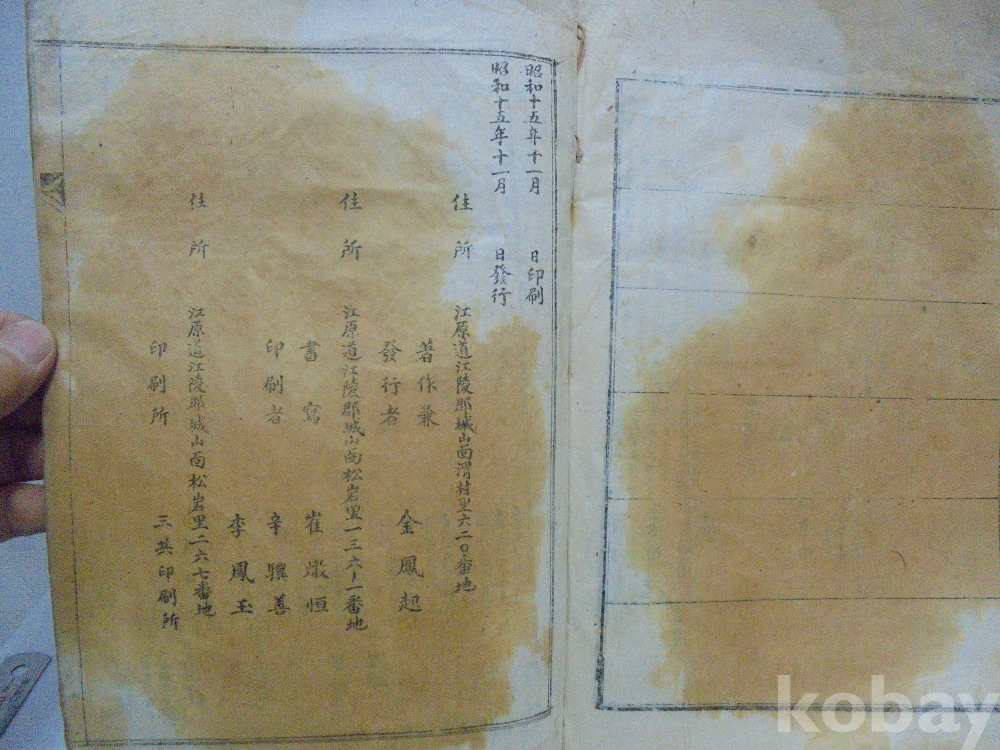 昭和十五年十一月 日印刷
昭和十五年十一月 日發行
住所 江原道江陵郡城山面渭村里六二〇番地
著作兼
發行者 金鳳起
住所 江原道江陵郡城山面松岩里一三六ノ一番地
書寫 崔燉恒
印刷者 辛驥善
李鳳玉
住所 江原道江陵郡城山面松岩里二六七番地
印刷所 三共印刷所
kobay